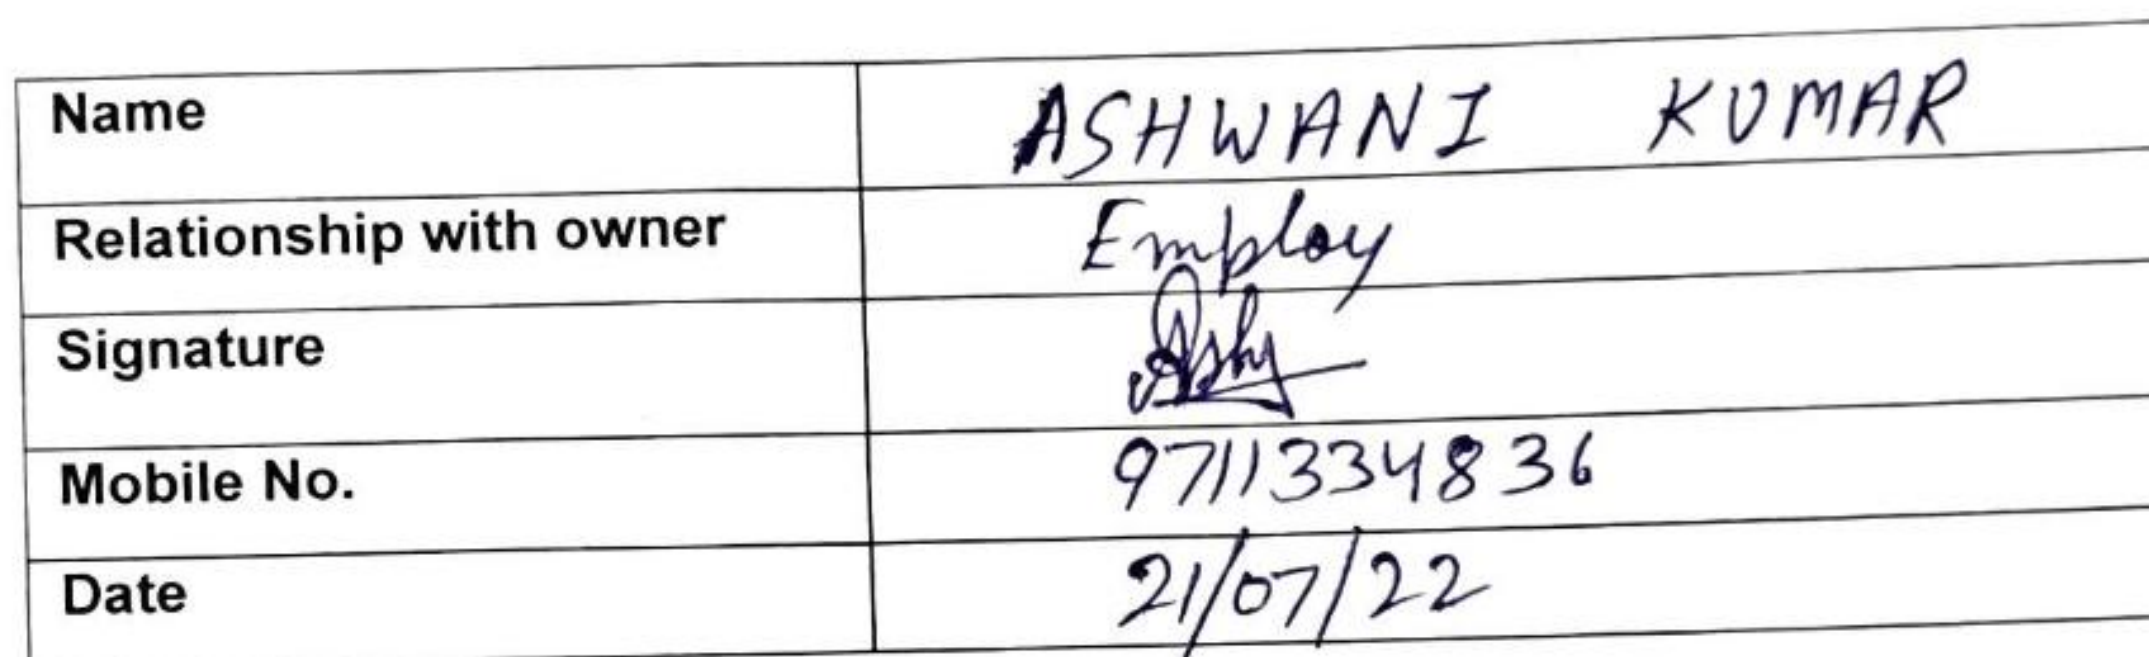 Name ASHWANI KUMAR
Relationship with owner Employ
Signature Ashy
Mobile No. 9711334836
Date 21/07/22